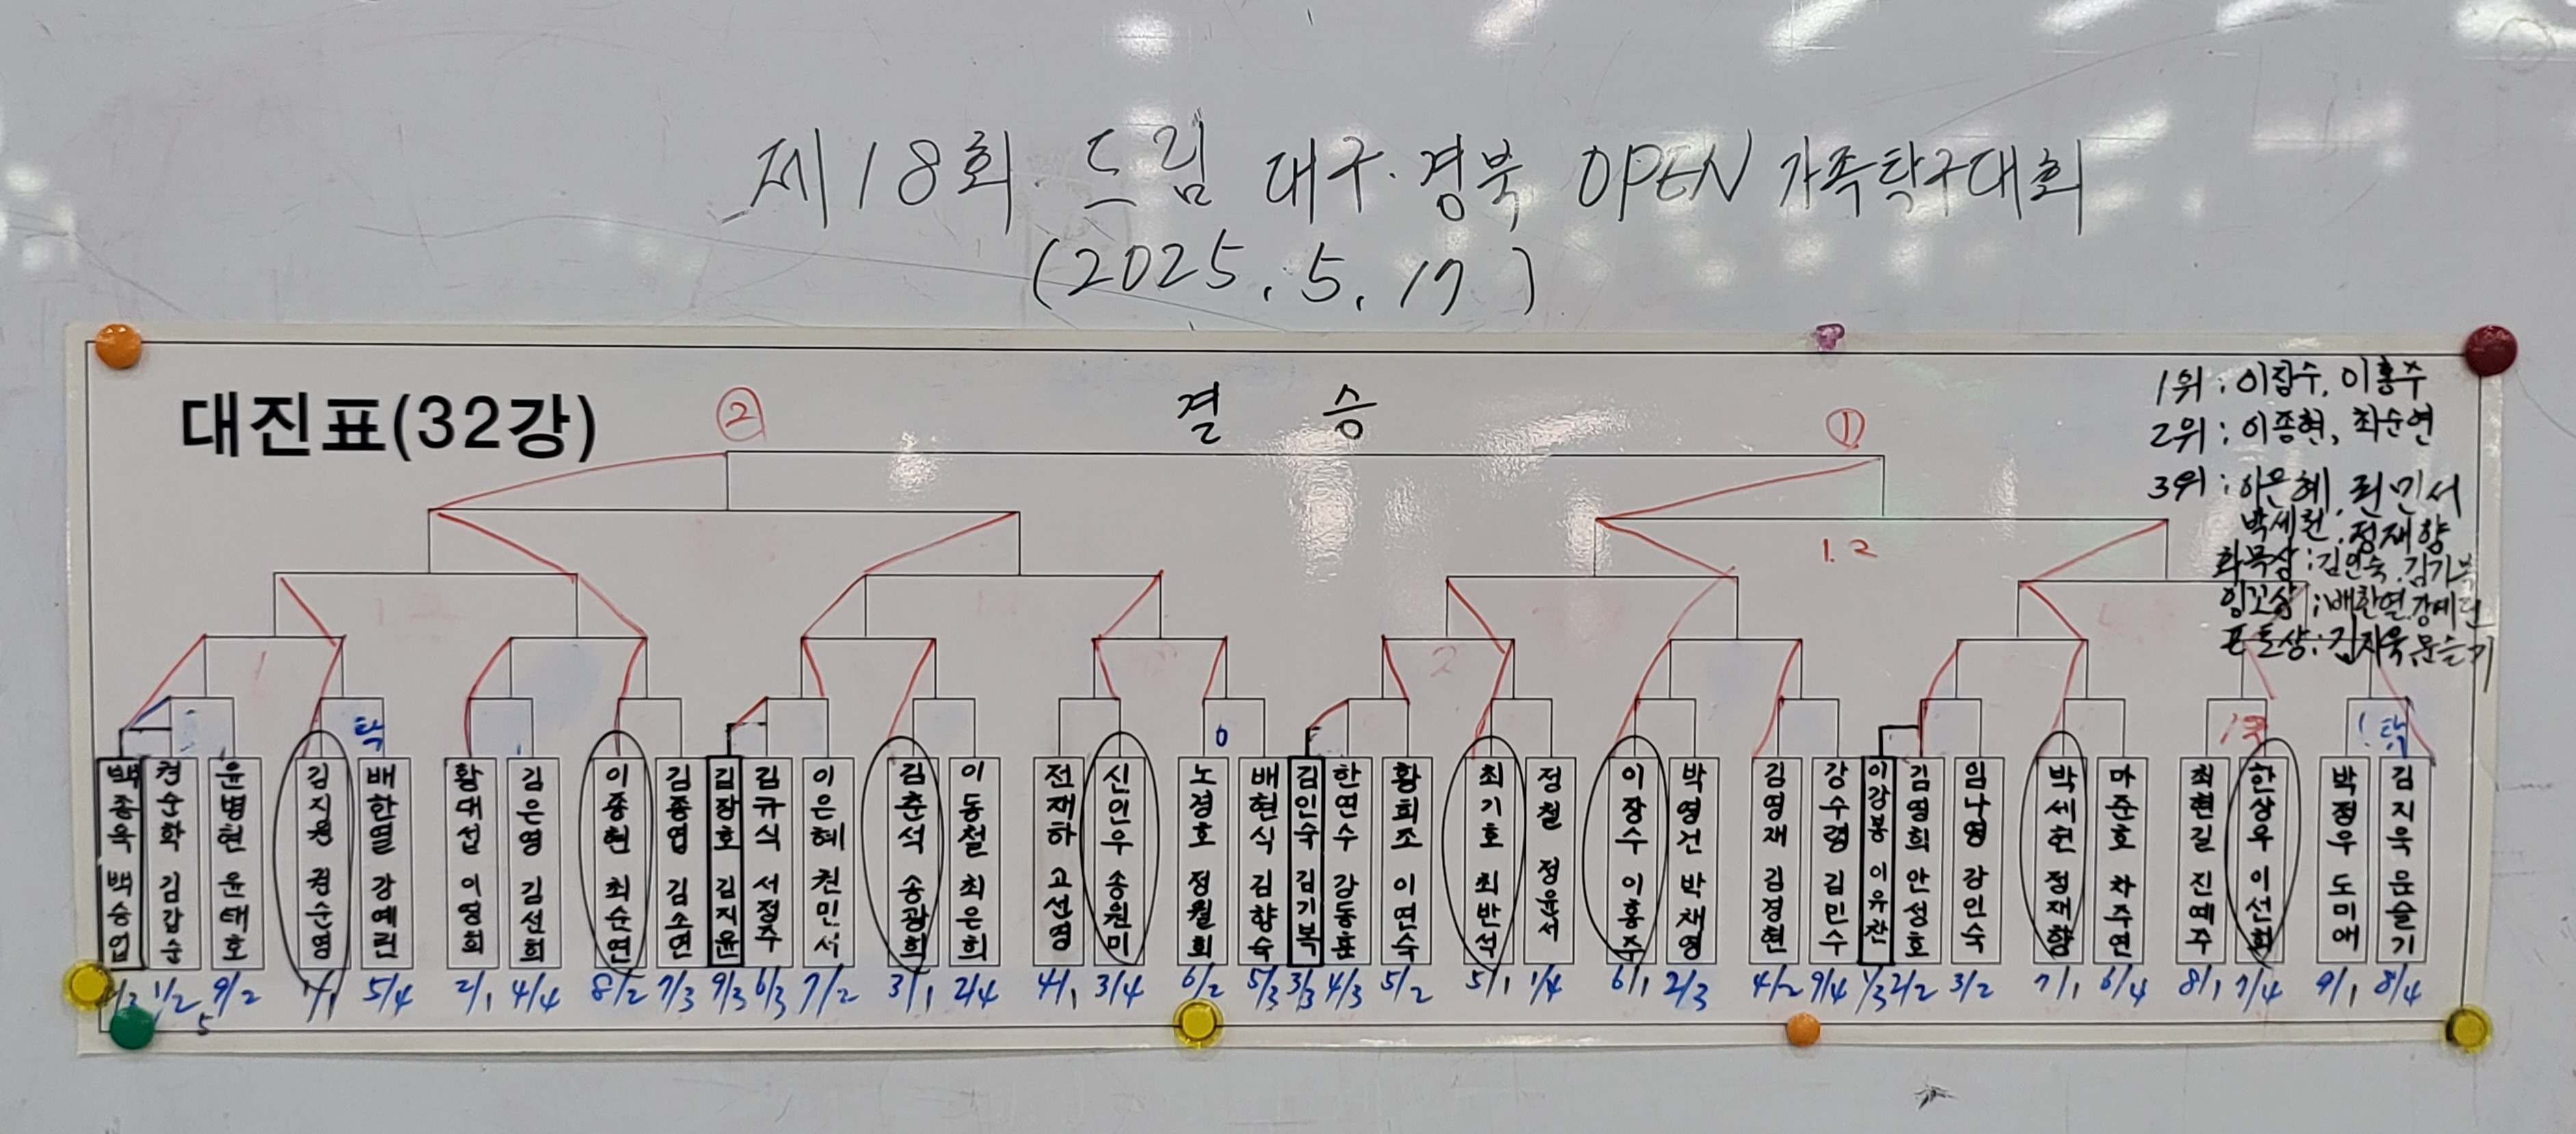 제18회 드림 대구·경북 OPEN 가족탁구대회
(2025.5.17)
대진표(32강)
②
결 승
①
1위 : 이장수, 이홍주
2위 : 이종현, 최순연
3위 : 이은혜, 권민서
박세헌, 정재향
화목상 : 김인숙, 김기복
잉꼬상 : 배한열, 강예린
포토상 : 김지욱, 문슬기
1.2
1
2
탁
6
탁
백종욱 백승업
권순학 김갑순
윤병현 윤태호
김지권 권순영
배한열 강예린
황대섭 이영희
김은영 김선희
이종현 최순연
김종엽 김소연
김장호 김지윤
김규식 서정주
이은혜 권민서
김춘석 송광희
이동철 최은희
전재하 고선영
신인우 송원미
노경호 정월회
배현식 김향숙
김인숙 김기복
한연수 강동훈
황희조 이연숙
최기호 최반석
정철 정윤서
이장수 이홍주
박영건 박채영
김영재 김경현
강수령 김민수
이강봉 이유찬
김영희 안성호
임나영 강인숙
박세헌 정재향
마준호 차주연
최현길 진예주
한상우 이선희
박정우 도미애
김지욱 문슬기
1/2 9/2 1/1 5/4 2/1 4/4 8/2 7/3 9/3 6/3 7/2 3/1 2/4 4/1 3/4 6/2 5/3 3/3 4/3 5/2 5/1 1/4 6/1 2/3 4/2 9/4 1/3 2/2 3/2 7/1 6/4 8/1 7/4 9/1 8/4
5